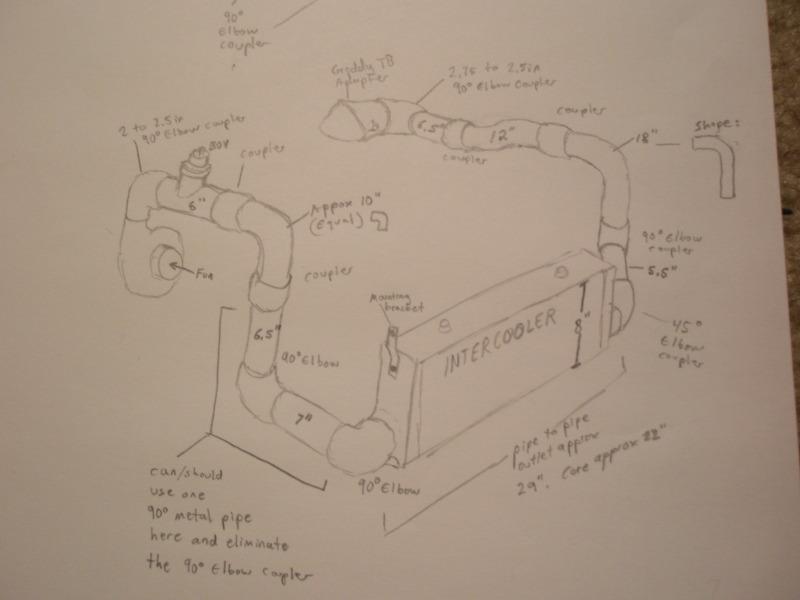 90°
Elbow
coupler
Greddy TB
Adapter
2.75 to 2.5in
90° Elbow Coupler
coupler
6.5"
12"
coupler
18"
shape:
2 to 2.5in
90° Elbow coupler
BOV
coupler
6"
Approx 10"
(Equal)
90° Elbow
coupler
5.5"
Fun
coupler
Mounting
bracket
6.5"
90° Elbow
INTERCOOLER
8"
45°
Elbow
coupler
7"
90° Elbow
pipe to pipe
outlet approx
29". Core approx 22"
can/should
use one
90° metal pipe
here and eliminate
the 90° Elbow Coupler